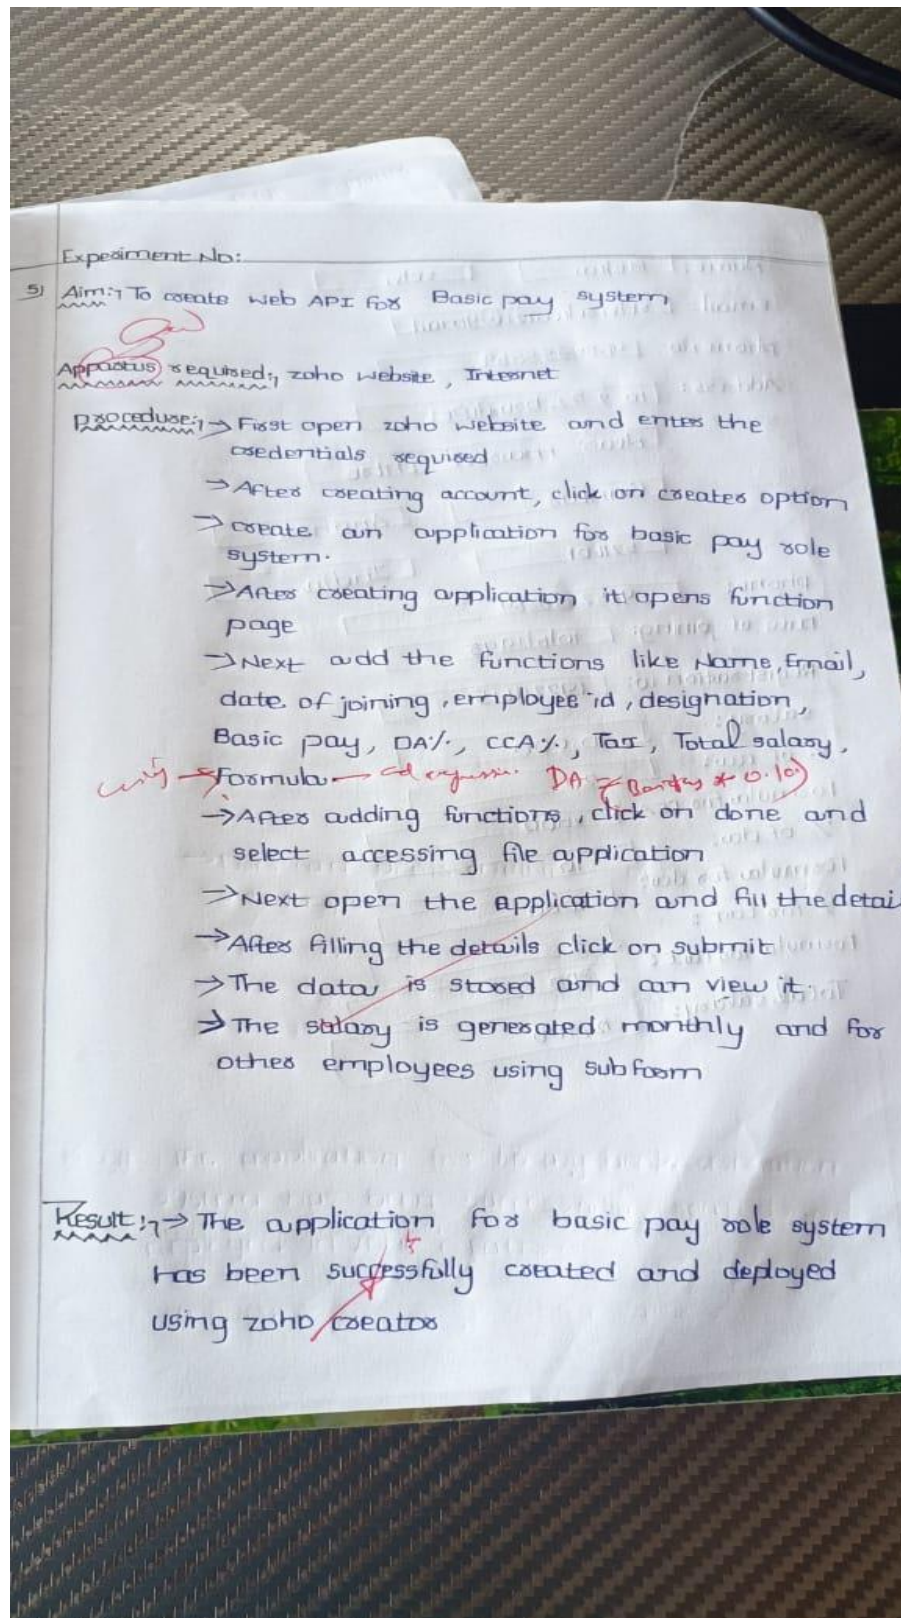 Experiment No:
5) Aim:- To create web API for Basic pay system
Appartus required:, zoho website, Internet
procedure:- → First open zoho website and enter the
credentials required
→ After creating account, click on creates option
→ create an application for basic pay role
system.
→ After creating application it opens function
page
→ Next add the functions like Name, Email,
date of joining, employee id, designation,
Basic pay, DA%, CCA%, Tax, Total salary,
Formula DA = (* 0.10)
→ After adding functions, click on done and
select accessing file application
→ Next open the application and fill the detai
→ After filling the details click on submit
→ The data is stored and can view it.
→ The salary is generated monthly and for
other employees using subform
Result:- → The application for basic pay role system
has been successfully created and deployed
using zoho creator